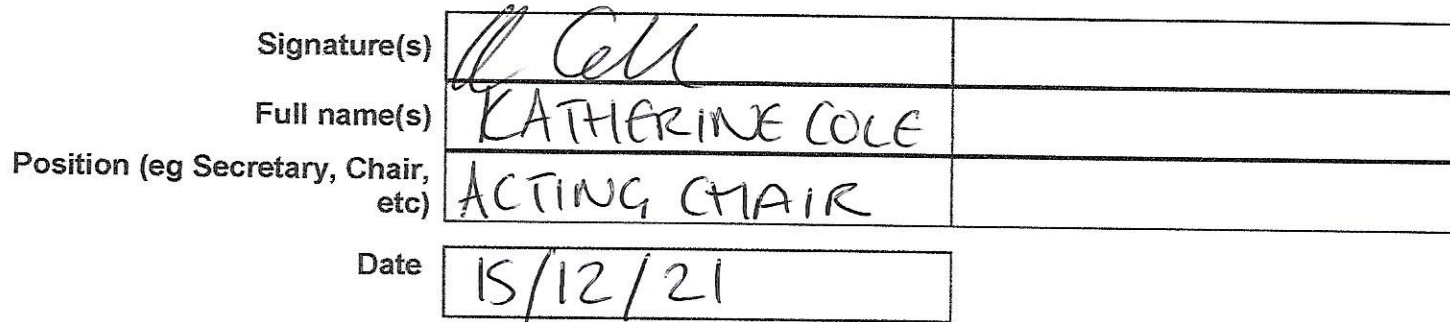 Signature(s)
Full name(s) KATHERINE COLE
Position (eg Secretary, Chair,
etc) ACTING CHAIR
Date 15/12/21